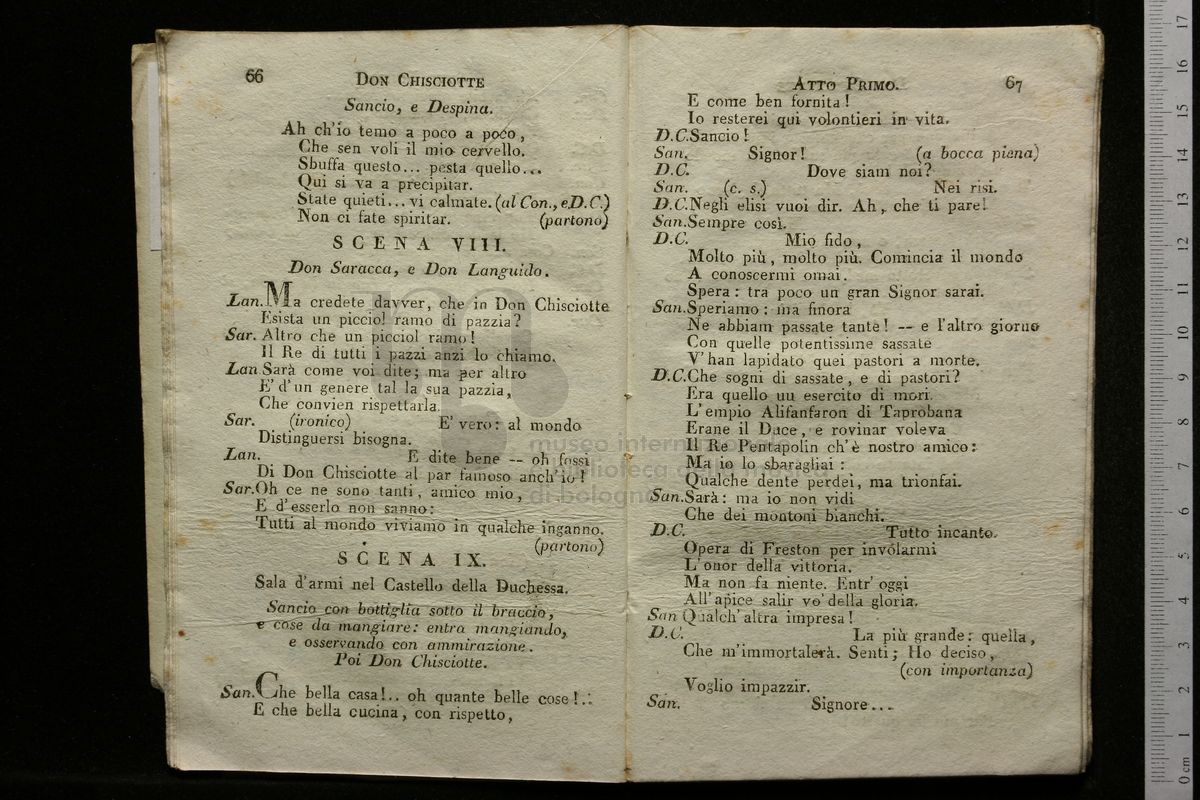 66
DON CHISCIOTTE
Sancio, e Despina.
Ah ch'io temo a poco a poco,
Che sen voli il mio cervello.
Sbuffa questo... pesta quello...
Qui si va a precipitar.
State quieti... vi calmate. (al Con., e D.C.)
Non ci fate spiritar. (partono)
SCENA VIII.
Don Saracca, e Don Languido.
Lan. Ma credete davver, che in Don Chisciotte
Esista un picciol ramo di pazzia?
Sar. Altro che un picciol ramo!
Il Re di tutti i pazzi anzi lo chiamo.
Lan Sarà come voi dite; ma per altro
E' d'un genere tal la sua pazzia,
Che convien rispettarla.
Sar. (ironico) E' vero: al mondo
Distinguersi bisogna.
Lan. E dite bene -- oh fossi
Di Don Chisciotte al par famoso anch'io!
Sar. Oh ce ne sono tanti, amico mio,
E d'esserlo non sanno:
Tutti al mondo viviamo in qualche inganno.
(partono)
SCENA IX.
Sala d'armi nel Castello della Duchessa.
Sancio con bottiglia sotto il braccio,
e cose da mangiare: entra mangiando,
e osservando con ammirazione.
Poi Don Chisciotte.
San. Che bella casa!.. oh quante belle cose!..
E che bella cucina, con rispetto,
ATTO PRIMO. 67
E come ben fornita!
Io resterei qui volontieri in vita.
D.C. Sancio!
San. Signor! (a bocca piena)
D.C. Dove siam noi?
San. (c. s.) Nei risi.
D.C. Negli elisi vuoi dir. Ah, che ti pare!
San. Sempre così.
D.C. Mio fido,
Molto più, molto più. Comincia il mondo
A conoscermi omai.
Spera: tra poco un gran Signor sarai.
San. Speriamo: ma finora
Ne abbiam passate tante! -- e l'altro giorno
Con quelle potentissime sassate
V'han lapidato quei pastori a morte.
D.C. Che sogni di sassate, e di pastori?
Era quello uu esercito di mori.
L'empio Alifanfaron di Taprobana
Erane il Duce, e rovinar voleva
Il Re Pentapolin ch'è nostro amico:
Ma io lo sbaragliai:
Qualche dente perdei, ma trionfai.
San. Sarà: ma io non vidi
Che dei montoni bianchi.
D.C. Tutto incanto.
Opera di Freston per involarmi
L'onor della vittoria.
Ma non fa niente. Entr' oggi
All'apice salir vo' della gloria.
San Qualch'altra impresa!
D.C. La più grande: quella,
Che m'immortalerà. Senti; Ho deciso,
(con importanza)
Voglio impazzir.
San. Signore...
museo internazionale
e biblioteca della musica
di bologna
0 cm 1 2 3 4 5 6 7 8 9 10 11 12 13 14 15 16 17